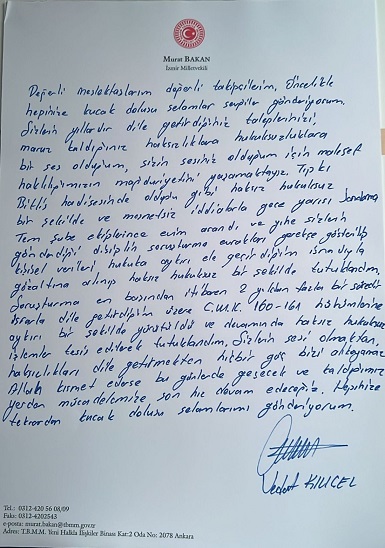 Murat BAKAN
İzmir Milletvekili
Değerli meslektaşlarım değerli takipçilerim, Öncelikle
hepinize kucak dolusu selamlar sevgiler gönderiyorum.
Sizlerin yıllardır dile getirdiğiniz taleplerinizi,
maruz kaldığınız haksızlıklara hukuksuzluklara
bir ses olduğum, sizin sesiniz olduğum için malesef
haklılığımızın mağduriyetini yaşamaktayız. Tıpkı
Bitlis hadisesinde olduğu gibi haksız hukuksuz
bir şekilde ve mesnetsiz iddialarla gece yarısı Jandarma
Tem Şube ekiplerince evim arandı ve yine sizlerin
gönderdiği disiplin soruşturma evrakları gerekçe gösterilip
kişisel verileri hukuka aykırı ele geçirdiğim isnadıyla
gözaltına alınıp haksız hukuksuz bir şekilde tutuklandım,
Soruşturma en başından itibaren 2 yıldan fazla bir süredir
ısrarla dile getirdiğim üzere C.M.K. 160-161 hükümlerine
aykırı bir şekilde yürütüldü ve devamında haksız hukuksuz
işlemler tesis edilerek tutuklandım, Sizlerin sesi olmaktan,
haksızlıkları dile getirmekten hiçbir güç bizi alıkoyamaz
Allah kısmet ederse bu günlerde geçecek ve kaldığımız
yerden mücadelemize son hız devam edeceğiz. Hepinize
tekrardan kucak dolusu selamlarımı gönderiyorum.
Vedat KILIÇEL
Tel.: 0312-420 56 08/09
Faks: 0312-4202543
e-posta: murat.bakan@tbmm.gov.tr
Adres: T.B.M.M. Yeni Halkla İlişkiler Binası Kat:2 Oda No: 2078 Ankara